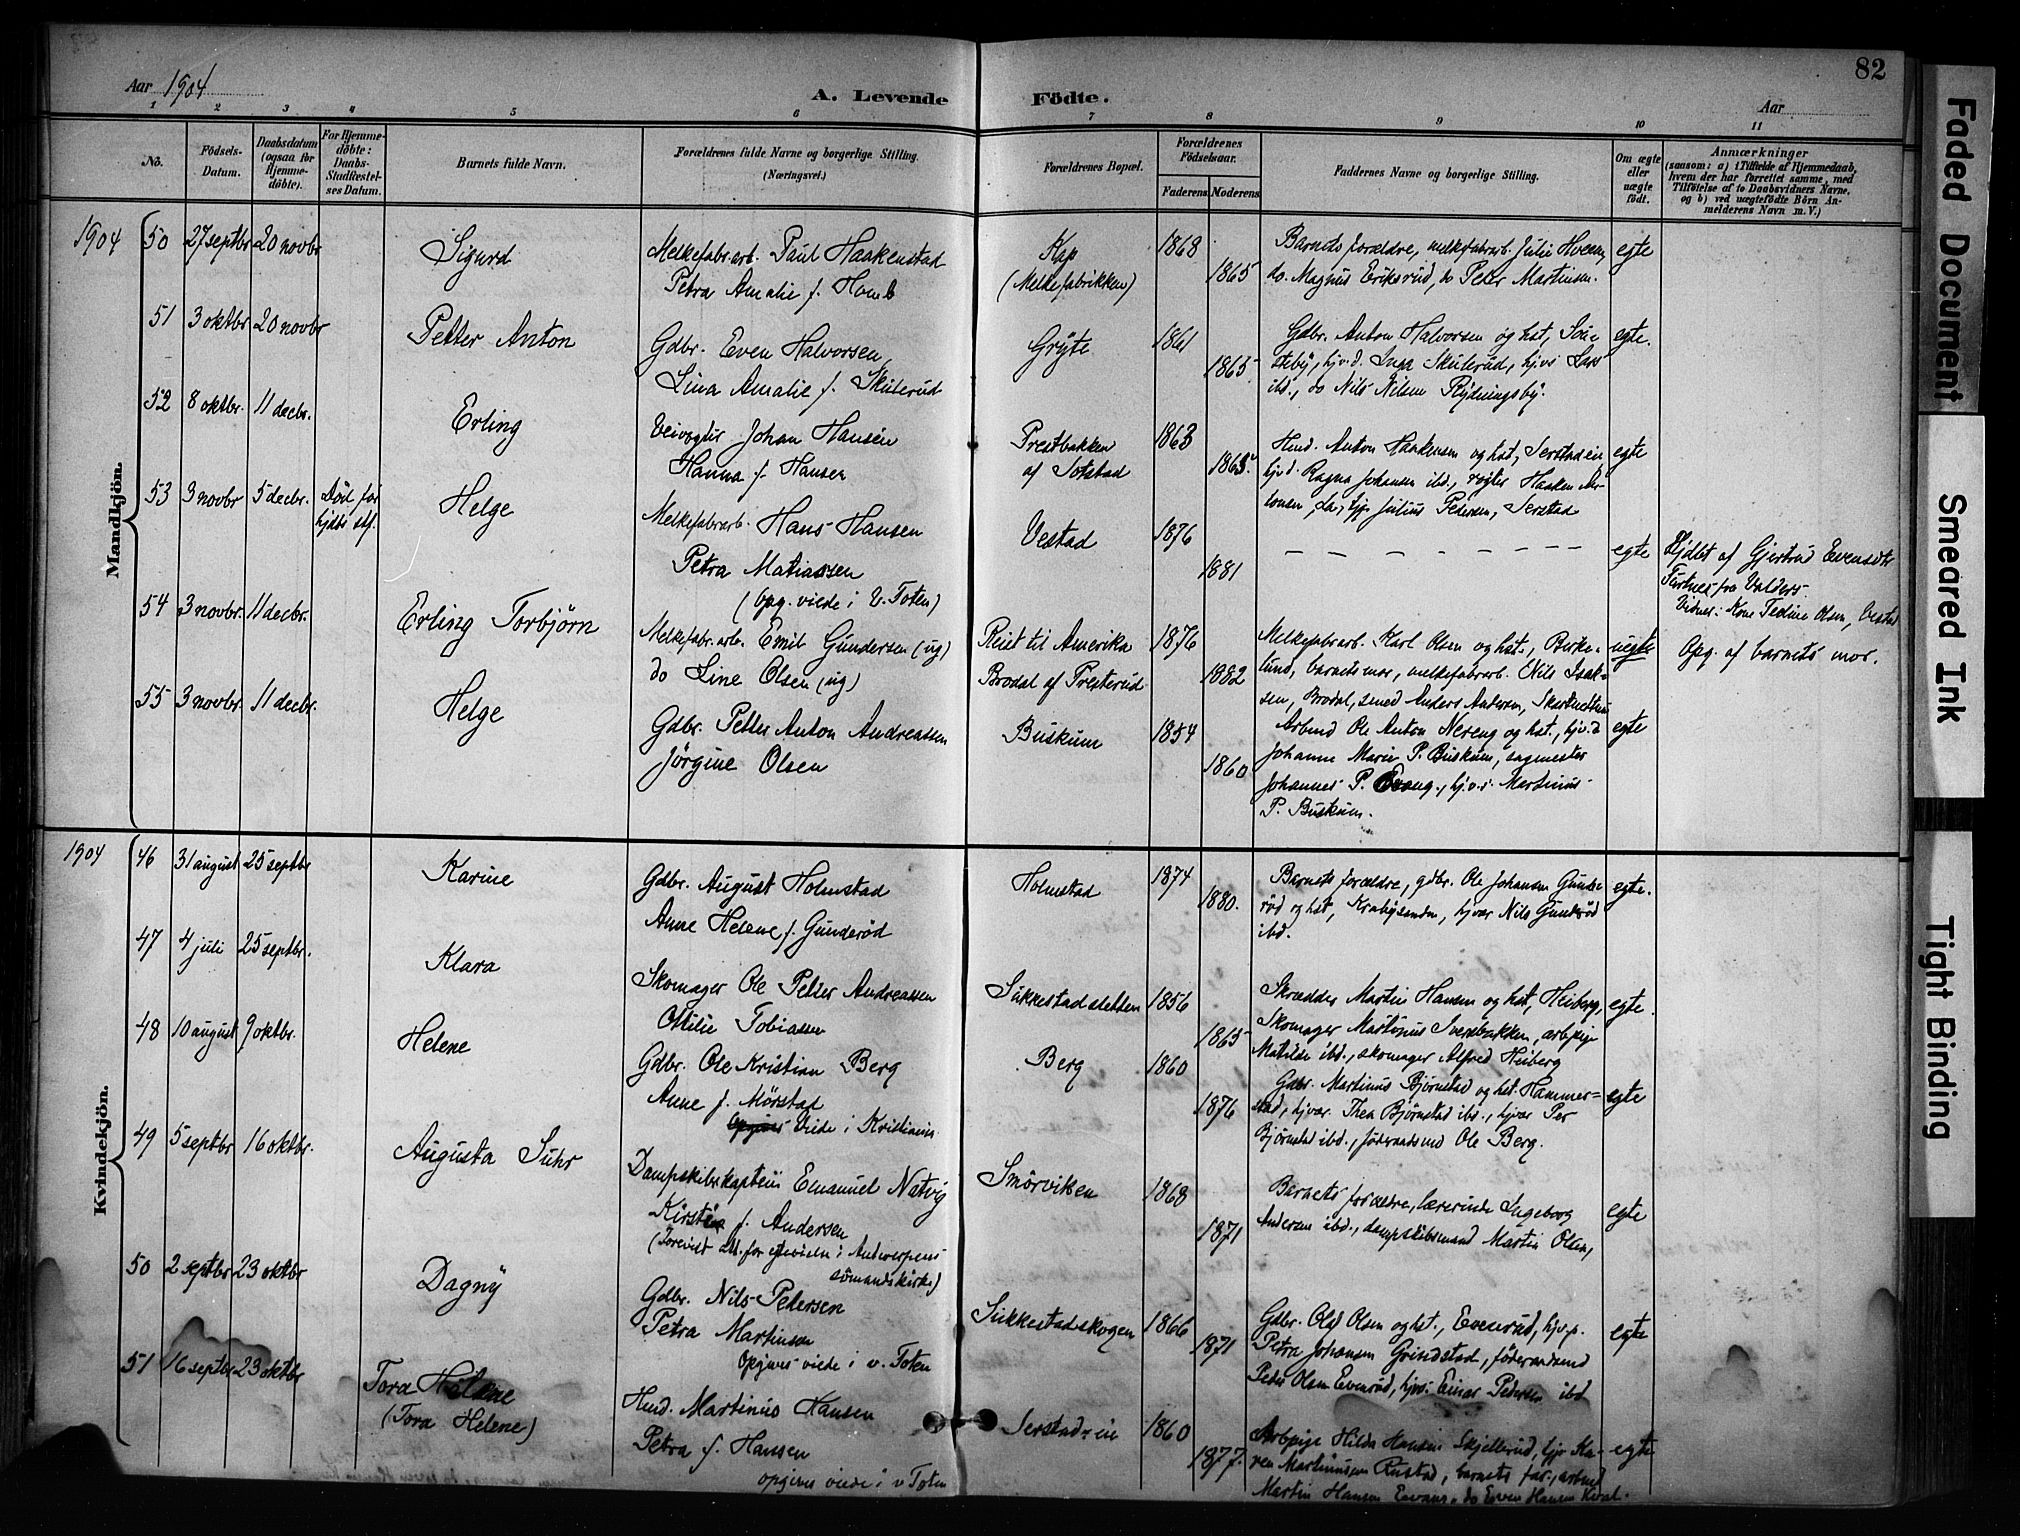 82
Aar 1904
A. Levende Födte.
Aar
1 2 3 4 5 6 7 8 9 10 11
No.
Födsels-Datum.
Daabsdatum (ogsaa for Hjemme-döbte).
For Hjemme-döbte: Daabs-Stadfestel-ses Datum.
Barnets fulde Navn.
Forældrenes fulde Navne og borgerlige Stilling.
(Næringsvei.)
Forældrenes Bopæl.
Forældrenes Födselsaar.
Faderens. Moderens.
Faddernes Navne og borgerlige Stilling.
Om ægte eller uægte født.
Anmærkninger
(saasom: a) i Tilfælde af Hjemmedaab,
hvem der har forrettet samme, med
Tilföielse af to Daabsvidners Navne,
og b) ved uægtefödte Börn An-
melderens Navn m. V.)
Mandkjön.
1904 50 27 septbr 20 novbr Sigurd
Melkefabr.arb. Paul Haakenstad
Petra Amalie f. Homb
Kap
(Melkefabrikken)
1868
1865
Barnets forældre, melkefabrarb. Julie Hveem,
do. Magnus Eriksrud, do Peder Martinsen.
egte
51 3 oktbr 20 novbr Petter Anton
Gdbr. Even Halvorsen,
Lina Amalie f. Skulerud
Gryte
1861
1865
Gdbr. Anton Halvorsen og hst,
hjv.d. Inga Skulerud,
ibd., do Nils Nilsen Rydningsby.
egte.
52 8 oktbr. 11 decbr. Erling
Veivogter Johan Hansen
Hanna f. Hansen
Prestbakken
af Sotstad
1863
1865.
Hmd. Anton Haakensen og hst, Serstadeie
hjv.d. Ragna Johansen ibd., røgter Haaken
Julius Pedersen, Serstad
egte
53 3 novbr 5 decbr. Død før
hjdbs stf.
Helge
Melkefabrarb. Hans Hansen
Petra Matiassen
(Opg. viede i V. Toten)
Vestad
1876
1881
— — — — — — — —
egte
Hjdbt af Gjertrud Evensdtr
fra Valders.
Vidner: Kone Tedine Olsen, Vestad
54 3 novbr. 11 decbr. Erling Torbjørn
Melkefabr.arb. Emil Gundersen (ug)
do Line Olsen (ug)
Reist til Amerika
Brodal af Presterud
1876
1882
Melkefabrarb. Karl Olsen og hst., Birke-
lund, barnets mor, melkefabrarb. Nils Isak-
sen, Brodal, smed Anders Andersen,
uegte
Opg. af barnets mor.
55 3 novbr. 11 decbr. Helge
Gdbr. Petter Anton Andreassen
Jörgine Olsen
Buskum
1854
1860
Arbmd Ole Anton Nereng og hst., hjv.d
Johanne Marie P. Buskum, sagmester
Johannes P. hjv.s. Martinus
P. Buskum.
egte
Kvindekjön.
1904 46 31 august 25 septbr Karine
Gdbr. August Holmstad
Anne Helene f. Gunderød
Holmstad
1874
1880.
Barnets forældre, gdbr. Ole Johansen Gunde-
rød og hst, hjvær Nils Gunderød
ibd.
egte.
47 4 juli 25 septbr. Klara
Skomager Ole Petter Andreassen
Otilie Tobiassen
Sukkestadsletten
1856
1865
Skrædder Martin Hansen og hst, Heiberg,
Skomager Martinus arbpige
Matilde ibd., skomager Alfred Heiberg
egte.
48 10 august 9 oktbr. Helene
Gdbr. Ole Kristian Berg
Anne f. Mørstad
viede i Kristiania
Berg
1860
1876
Gdbr. Martinus Bjørnstad og hst. Hammer-
stad, hjvær. Thea Bjørnstad ibd., hjvær Per
Bjørnstad ibd., føderaadsmd Ole Berg.
egte
49 5 septbr 16 oktbr. Augusta Suhr
Dampskibskaptein Emanuel Natvig
Kirstine f. Andersen
(Forevist att. for egtevielse i Antwerpens
sömandskirke)
Smörviken
1868
1871
Barnets forældre, lærerinde Ingeborg
Andersen ibd., dampskibsmand Martin Olsen,
egte
50 2 septbr 23 oktbr Dagny
Gdbr. Nils Pedersen
Petra Martinsen
Opgives viede i v. Toten
Sukkestadskogen
1866
1871
Gdbr. Olaf Olsen og hst., Evenrud, hjv.p.
Petra Johansen Grindstad, föderaadsmd
Peder Olsen Evenrud, hjvs. Einar Pedersen ibd
egte
51 16 septbr 23 oktbr Tora Helene
(Tora Helene)
Hmd. Martinus Hansen
Petra f. Hansen
opgives viede i v Toten
Serstad-eie
1860
1877.
Arbpige Hilda Hansen Skjellerud, hjv Ka-
ren Martinusen Rustad, barnets far, arbmd
Martin Hansen do Even Hansen Kval.
egte
Faded Document
Smeared Ink
Tight Binding